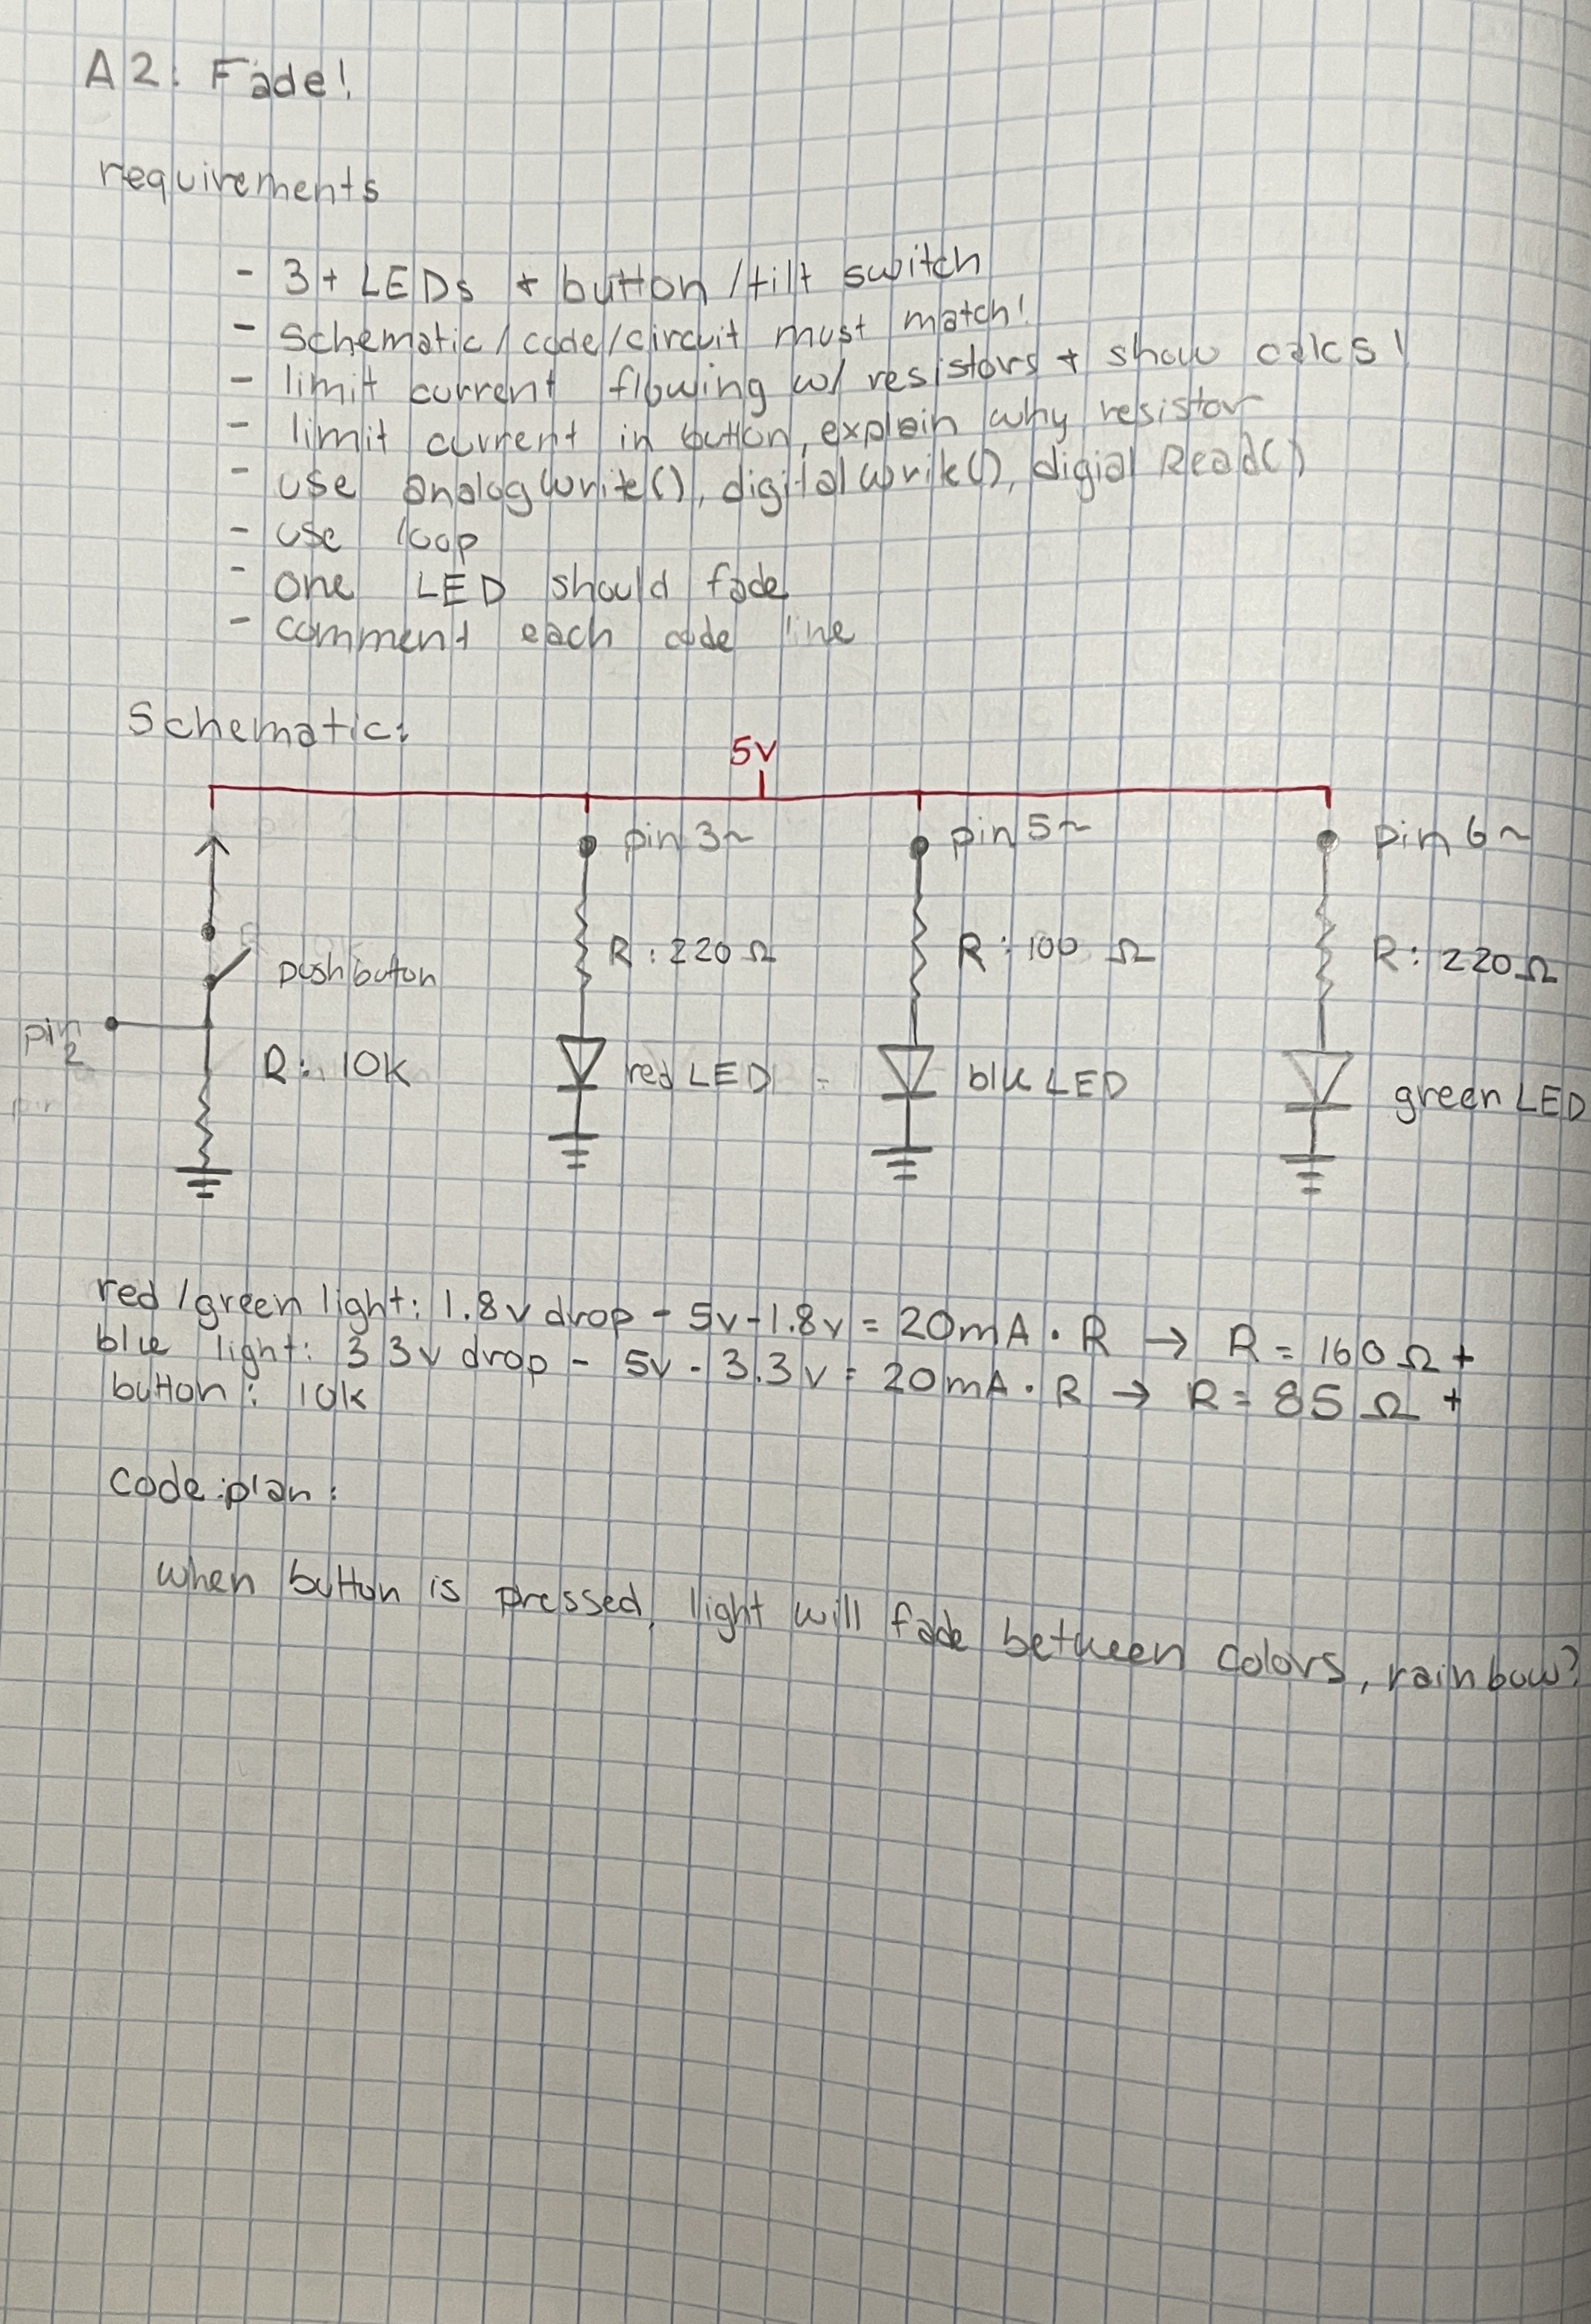 A2: Fade!
requirements
- 3+ LEDs + button/tilt switch
- Schematic/code/circuit must match!
- limit current flowing w/ resistors + show calcs!
- limit current in button, explain why resistor
- use analogWrite(), digitalWrite(), digial Read()
- use loop
- one LED should fade
- comment each code line
Schematic:
5V
pin 3~
pin 5~
pin 6~
R: 220 Ω
R: 100 Ω
R: 220 Ω
pushbutton
pin 2
R: 10K
red LED
blue LED
green LED
red/green light: 1.8v drop - 5v-1.8v = 20mA · R → R = 160 Ω +
blue light: 3.3v drop - 5v - 3.3v = 20mA · R → R = 85 Ω +
button: 10k
code plan:
when button is pressed, light will fade between colors, rainbow?